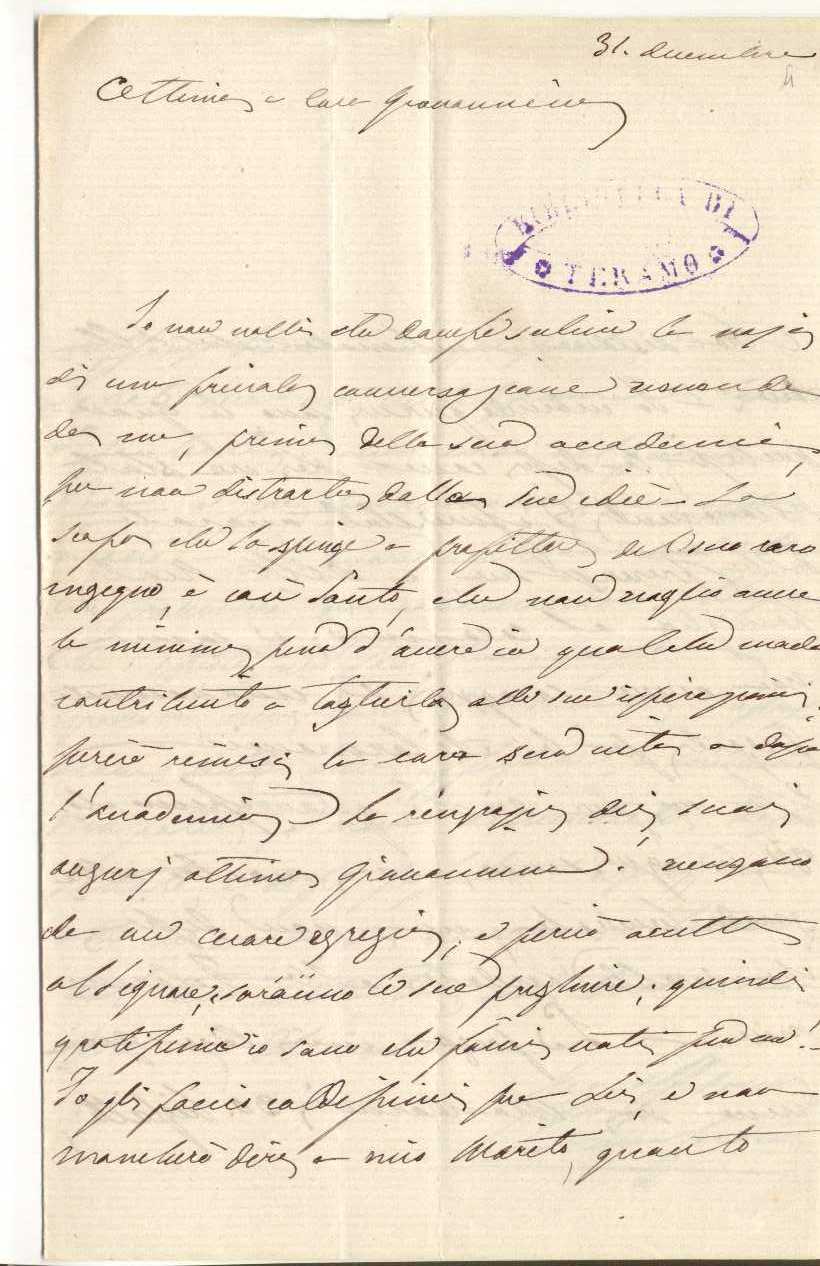 31. decembre
Ottima e cara Giovannina
BIBLIOTECA DI
TERAMO
Io non volli che
di una privata conversazione
da me, prima della sua accademia,
per non distrarla dalle sue idee. Lo
scopo che la spinge a profittare del suo raro
ingegno, è così Santo, che non voglio avere
la minima pena d'avere in qualche modo
contribuito a toglierla alle sue ispirazioni.
perciò rimisi la cara sua a dopo
l'accademia La ringrazio dei suoi
augurj ottima Giovannina! vengono
da un cuore egregio, e perciò accette
al Signore, saranno le sue preghiere; quindi
gratissima io sono che facci voti per me!
Io gli faccio caldissimi per Lei, e non
mancherò dire a mio Marito, quanto